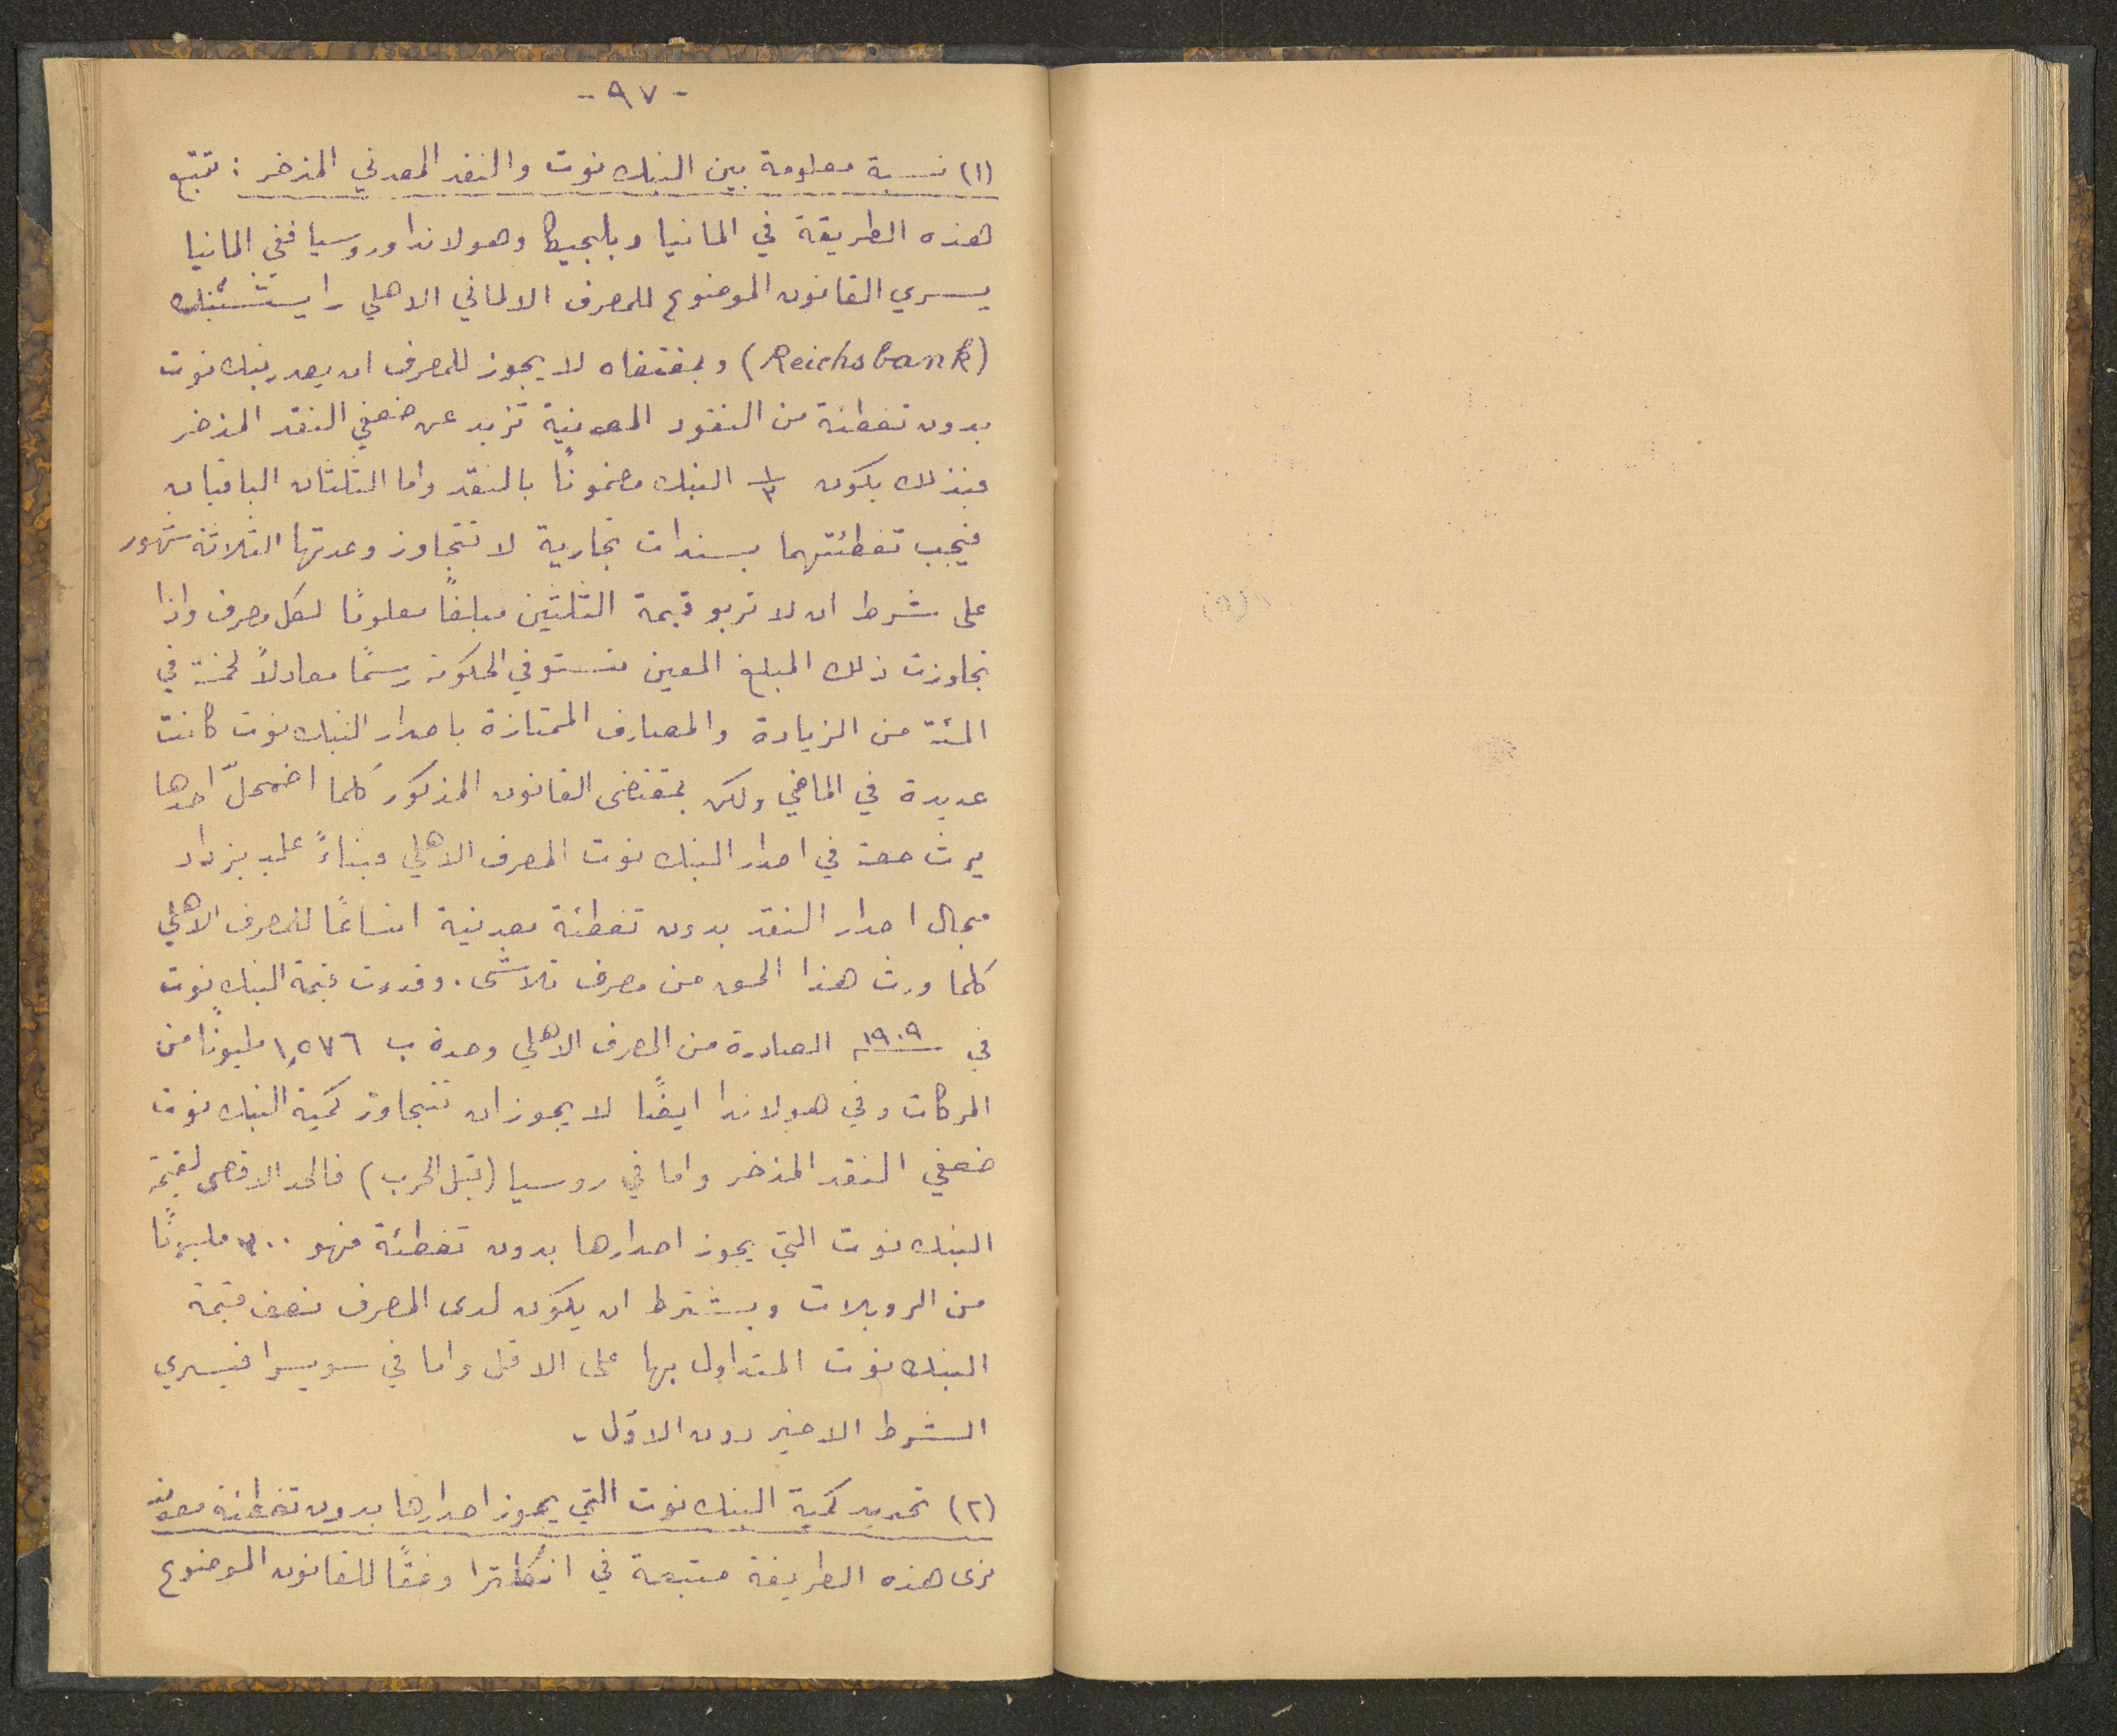 - ٩٧ -
(١) نسبة معلومة بين البنك نوت والنقد المعدني المذخر : تتبع
هذه الطريقة في المانيا وبلجيكا وهولاندا وروسيا ففي المانيا
يسري القانون الموضوع للمصرف الالماني الاهلي رايشسبنك
(Reichsbank) وبمقتضاه لا يجوز للمصرف ان يصدر بنك نوت
بدون تغطئة من النقود المعدنية تزيد عن ضعفي النقد المذخر
فبذلك يكون ١/٣ البنك مضمونًا بالنقد واما الثلثان الباقيان
فيجب تغطئتهما بسندات تجارية لا تتجاوز وعدتها الثلاثة شهور
على شرط ان لا تربو قيمة الثلثين مبلغًا معلومًا لكل مصرف واذا
تجاوزت ذلك المبلغ المعين تستوفي الحكومة رسمًا معادلاً لخمسة في
المئة من الزيادة والمصارف الممتازة باصدار البنك نوت كانت
عديدة في الماضي ولكن بمقتضى القانون المذكور كلما اضمحلّ احدها
يرث حقه في اصدار البنك نوت المصرف الاهلي فبناءً عليه يزداد
مجال اصدار النقد بدون تغطئة معدنية اتساعًا للمصرف الاهلي
كلما ورث هذا الحق من مصرف تلاشى. وقدرت قيمة البنك نوت
في ١٩٠٩ الصادرة من المصرف الاهلي وحده ب ١,٥٧٦ مليونًا من
المركات وفي هولاندا ايضًا لا يجوز ان تتجاوز كمية البنك نوت
ضعفي النقد المذخر واما في روسيا (قبل الحرب) فالحد الاقصى لقيمة
البنك نوت التي يجوز اصدارها بدون تغطئة فهو ٣٠٠ مليونًا
من الروبلات ويشترط ان يكون لدى المصرف نصف قيمة
البنك نوت المتداول بها على الاقل واما في سويسرا فيسري
الشرط الاخير دون الاول .
(٢) تحديد كمية البنك نوت التي يجوز اصدارها بدون تغطئة معدنية
نرى هذه الطريقة متبعة في انكلترا وفقًا للقانون الموضوع